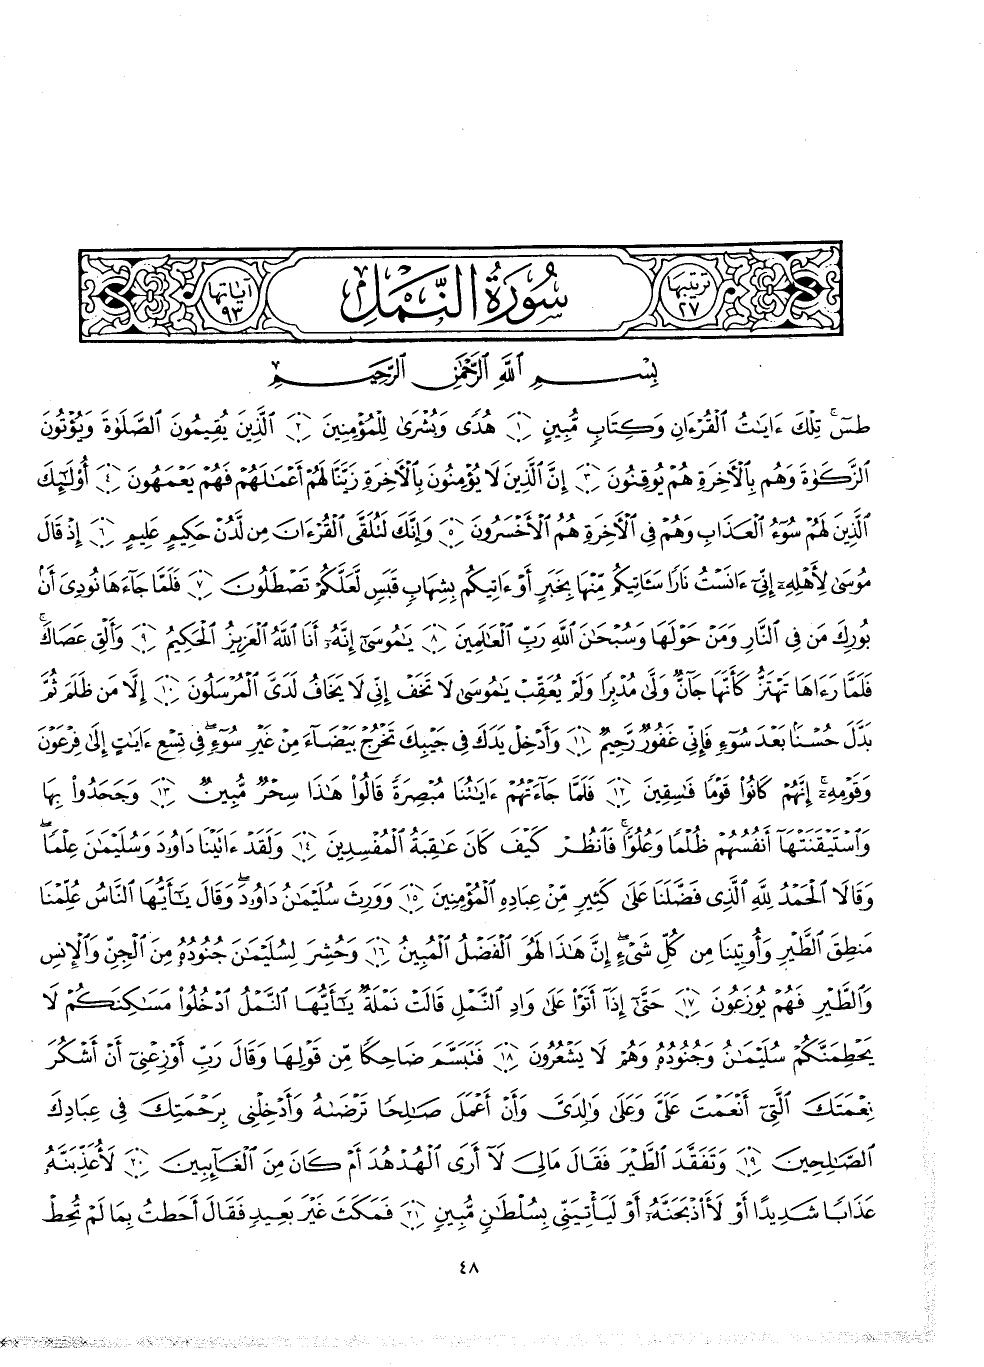 ترتيبها ٢٧ سُورَةُ النَّمْلِ آياتها ٩٣
بِسْمِ ٱللَّهِ ٱلرَّحْمَٰنِ ٱلرَّحِيمِ
طسٓ ۚ تِلْكَ ءَايَٰتُ ٱلْقُرْءَانِ وَكِتَابٍ مُّبِينٍ ١ هُدًى وَبُشْرَىٰ لِلْمُؤْمِنِينَ ٢ ٱلَّذِينَ يُقِيمُونَ ٱلصَّلَوٰةَ وَيُؤْتُونَ
ٱلزَّكَوٰةَ وَهُم بِٱلْأَخِرَةِ هُمْ يُوقِنُونَ ٣ إِنَّ ٱلَّذِينَ لَا يُؤْمِنُونَ بِٱلْأَخِرَةِ زَيَّنَّا لَهُمْ أَعْمَٰلَهُمْ فَهُمْ يَعْمَهُونَ ٤ أُوْلَٰٓئِكَ
ٱلَّذِينَ لَهُمْ سُوٓءُ ٱلْعَذَابِ وَهُمْ فِى ٱلْأَخِرَةِ هُمُ ٱلْأَخْسَرُونَ ٥ وَإِنَّكَ لَتُلَقَّى ٱلْقُرْءَانَ مِن لَّدُنْ حَكِيمٍ عَلِيمٍ ٦ إِذْ قَالَ
مُوسَىٰ لِأَهْلِهِۦٓ إِنِّىٓ ءَانَسْتُ نَارًا سَـَٔاتِيكُم مِّنْهَا بِخَبَرٍ أَوْ ءَاتِيكُم بِشِهَابٍ قَبَسٍ لَّعَلَّكُمْ تَصْطَلُونَ ٧ فَلَمَّا جَآءَهَا نُودِىَ أَنۢ
بُورِكَ مَن فِى ٱلنَّارِ وَمَنْ حَوْلَهَا وَسُبْحَٰنَ ٱللَّهِ رَبِّ ٱلْعَٰلَمِينَ ٨ يَٰمُوسَىٰٓ إِنَّهُۥٓ أَنَا ٱللَّهُ ٱلْعَزِيزُ ٱلْحَكِيمُ ٩ وَأَلْقِ عَصَاكَ ۚ
فَلَمَّا رَءَاهَا تَهْتَزُّ كَأَنَّهَا جَآنٌّ وَلَّىٰ مُدْبِرًا وَلَمْ يُعَقِّبْ يَٰمُوسَىٰ لَا تَخَفْ إِنِّى لَا يَخَافُ لَدَىَّ ٱلْمُرْسَلُونَ ١٠ إِلَّا مَن ظَلَمَ ثُمَّ
بَدَّلَ حُسْنًۢا بَعْدَ سُوٓءٍ فَإِنِّى غَفُورٌ رَّحِيمٌ ١١ وَأَدْخِلْ يَدَكَ فِى جَيْبِكَ تَخْرُجْ بَيْضَآءَ مِنْ غَيْرِ سُوٓءٍ ۖ فِى تِسْعِ ءَايَٰتٍ إِلَىٰ فِرْعَوْنَ
وَقَوْمِهِۦٓ ۚ إِنَّهُمْ كَانُوا۟ قَوْمًا فَٰسِقِينَ ١٢ فَلَمَّا جَآءَتْهُمْ ءَايَٰتُنَا مُبْصِرَةً قَالُوا۟ هَٰذَا سِحْرٌ مُّبِينٌ ١٣ وَجَحَدُوا۟ بِهَا
وَٱسْتَيْقَنَتْهَآ أَنفُسُهُمْ ظُلْمًا وَعُلُوًّا ۚ فَٱنظُرْ كَيْفَ كَانَ عَٰقِبَةُ ٱلْمُفْسِدِينَ ١٤ وَلَقَدْ ءَاتَيْنَا دَاوُۥدَ وَسُلَيْمَٰنَ عِلْمًا ۖ
وَقَالَا ٱلْحَمْدُ لِلَّهِ ٱلَّذِى فَضَّلَنَا عَلَىٰ كَثِيرٍ مِّنْ عِبَادِهِ ٱلْمُؤْمِنِينَ ١٥ وَوَرِثَ سُلَيْمَٰنُ دَاوُۥدَ ۖ وَقَالَ يَٰٓأَيُّهَا ٱلنَّاسُ عُلِّمْنَا
مَنطِقَ ٱلطَّيْرِ وَأُوتِينَا مِن كُلِّ شَىْءٍ ۖ إِنَّ هَٰذَا لَهُوَ ٱلْفَضْلُ ٱلْمُبِينُ ١٦ وَحُشِرَ لِسُلَيْمَٰنَ جُنُودُهُۥ مِنَ ٱلْجِنِّ وَٱلْإِنسِ
وَٱلطَّيْرِ فَهُمْ يُوزَعُونَ ١٧ حَتَّىٰٓ إِذَآ أَتَوْا۟ عَلَىٰ وَادِ ٱلنَّمْلِ قَالَتْ نَمْلَةٌ يَٰٓأَيُّهَا ٱلنَّمْلُ ٱدْخُلُوا۟ مَسَٰكِنَكُمْ لَا
يَحْطِمَنَّكُمْ سُلَيْمَٰنُ وَجُنُودُهُۥ وَهُمْ لَا يَشْعُرُونَ ١٨ فَتَبَسَّمَ ضَاحِكًا مِّن قَوْلِهَا وَقَالَ رَبِّ أَوْزِعْنِىٓ أَنْ أَشْكُرَ
نِعْمَتَكَ ٱلَّتِىٓ أَنْعَمْتَ عَلَىَّ وَعَلَىٰ وَٰلِدَىَّ وَأَنْ أَعْمَلَ صَٰلِحًا تَرْضَىٰهُ وَأَدْخِلْنِى بِرَحْمَتِكَ فِى عِبَادِكَ
ٱلصَّٰلِحِينَ ١٩ وَتَفَقَّدَ ٱلطَّيْرَ فَقَالَ مَالِىَ لَآ أَرَى ٱلْهُدْهُدَ أَمْ كَانَ مِنَ ٱلْغَآئِبِينَ ٢٠ لَأُعَذِّبَنَّهُۥ
عَذَابًا شَدِيدًا أَوْ لَأَا۟ذْبَحَنَّهُۥٓ أَوْ لَيَأْتِيَنِّى بِسُلْطَٰنٍ مُّبِينٍ ٢١ فَمَكَثَ غَيْرَ بَعِيدٍ فَقَالَ أَحَطتُ بِمَا لَمْ تُحِطْ
٤٨